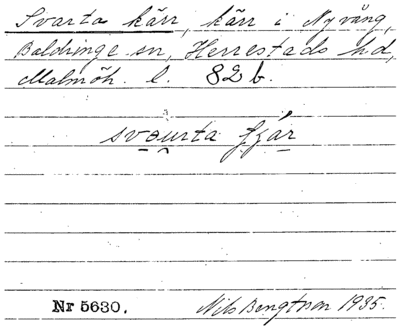 Svarta kärr, kärr i Nyväng,
Baldringe sn, Herrestads hd,
Malmöh. l. 82 b.
svaurta
Nr 5630. Nils Bengtsson 1935.